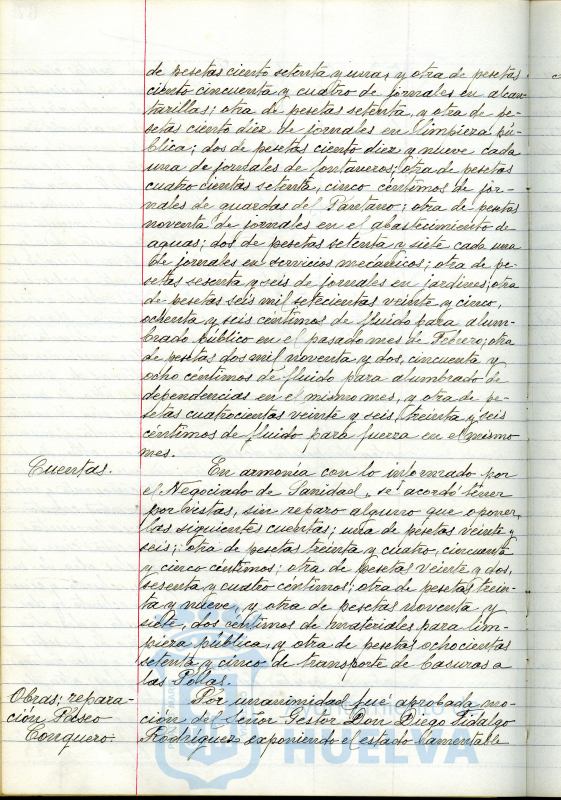 de pesetas ciento setenta y una, y otra de pesetas
ciento cincuenta y cuatro de jornales en alcan-
tarillas; otra de pesetas setenta, y otra de pe-
setas ciento diez de jornales en limpieza pú-
blica; dos de pesetas ciento diez y nueve cada
una de jornales de fontaneros; otra de pesetas
cuatrocientas setenta, cinco céntimos de jor-
nales de guardas del Pantano; otra de pesetas
noventa de jornales en el abastecimiento de
aguas; dos de pesetas setenta y siete cada una
de jornales en servicios mecánicos; otra de pe-
setas sesenta y seis de jornales en jardines; otra
de pesetas seis mil setecientas veinte y cinco,
ochenta y seis céntimos de fluido para alum-
brado público en el pasado mes de Febrero; otra
de pesetas dos mil noventa y dos, cincuenta y
ocho céntimos de fluido para alumbrado de
dependencias en el mismo mes, y otra de pe-
setas cuatrocientas veinte y seis, treinta y seis
céntimos de fluido para fuerza en el mismo
mes.
Cuentas. En armonía con lo informado por
el Negociado de Sanidad, se acordó tener
por vistas, sin reparo alguno que oponer,
las siguientes cuentas; una de pesetas veinte y
seis; otra de pesetas treinta y cuatro, cincuenta
y cinco céntimos; otra de pesetas veinte y dos,
sesenta y cuatro céntimos; otra de pesetas trein-
ta y nueve, y otra de pesetas noventa y
siete, dos céntimos de materiales para lim-
pieza pública, y otra de pesetas ochocientas
setenta y cinco de transporte de basuras a
las Pollas.
Obras; repara- Por unanimidad fué aprobada mo-
ción Paseo ción del señor Gestor Don Diego Fidalgo
Conquero. Rodríguez exponiendo el estado lamentable
HUELVA